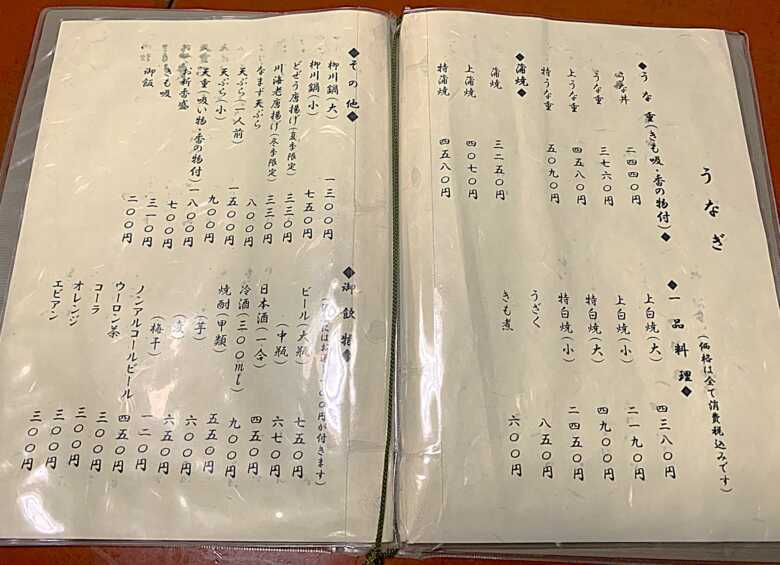 うなぎ
(価格は全て消費税込みです)
◆うな重(きも吸・香の物付)◆
うな丼 二四四〇円
うな重 三七六〇円
上うな重 四五八〇円
特うな重 五〇九〇円
◆蒲焼◆
蒲焼 三二五〇円
上蒲焼 四〇七〇円
特蒲焼 四五八〇円
◆一品料理◆
上白焼(大) 四三八〇円
上白焼(小) 二一九〇円
特白焼(大) 四九〇〇円
特白焼(小) 二四五〇円
うざく 八五〇円
きも煮 六〇〇円
◆その他◆
柳川鍋(大) 一三〇〇円
柳川鍋(小) 七五〇円
どぜう唐揚げ(夏季限定) 三三〇円
川海老唐揚げ(冬季限定) 三三〇円
なまず天ぷら 八〇〇円
天ぷら(一人前) 一五〇〇円
天ぷら(小) 九〇〇円
天重(吸い物・香の物付) 一八〇〇円
お新香盛 七〇〇円
きも吸 三一〇円
御飯 二〇〇円
◆御飲物◆
にはお 〇〇円が付きます)
ビール(大瓶) 七五〇円
(中瓶) 六七〇円
日本酒(一合) 四五〇円
冷酒(三〇〇ml) 九〇〇円
焼酎(甲類) 五五〇円
(芋) 六〇〇円
(麦) 六五〇円
(梅干) 一二〇円
ノンアルコールビール 四五〇円
ウーロン茶 三〇〇円
コーラ 三〇〇円
オレンジ 三〇〇円
エビアン 三〇〇円